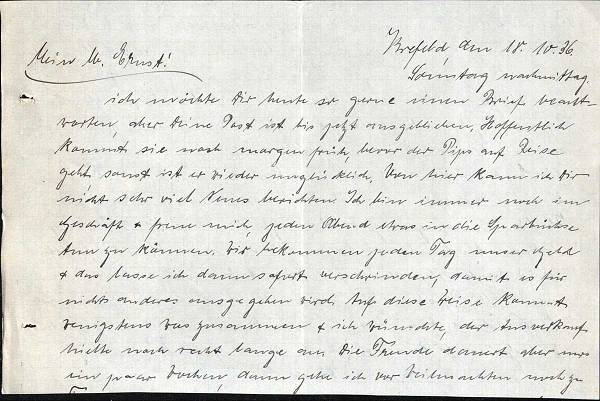 Krefeld, den 18. 10. 36.
Sonntag nachmittag.
Mein lb. Ernst!
ich möchte Dir heute so gerne einen Brief beant-
worten, aber Deine Post ist bis jetzt ausgeblieben. Hoffentlich
kommt sie noch morgen früh, bevor der Pips auf Reise
geht, sonst ist er wieder unglücklich. Von hier kann ich Dir
nicht sehr viel Neues berichten. Ich bin immer noch im
Geschäft & freue mich, jeden Abend etwas in die Sparbüchse
tun zu können. Wir bekommen jeden Tag unser Geld
& das lasse ich dann sofort verschwinden, damit es für
nichts anderes ausgegeben wird. Auf diese Weise kommt
wenigstens was zusammen & ich wünschte, der Ausverkauf
hielte noch recht lange an. Die Freude dauert aber nur
ein paar Wochen, dann gehe ich vor Weihnachten noch